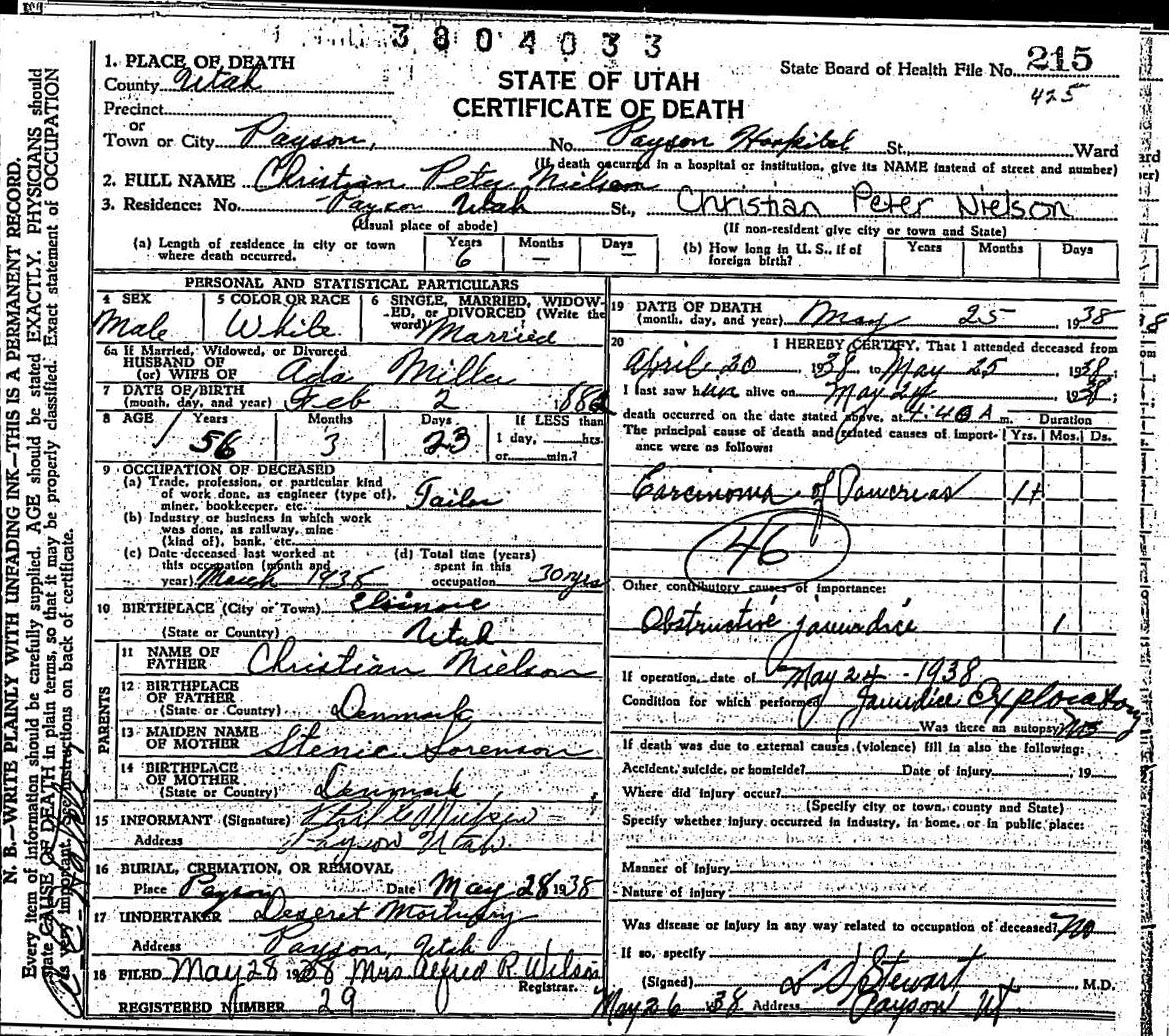 3804033
1. PLACE OF DEATH
County Utah
Precinct
or
Town or City Payson, No. Payson Hospital St. Ward
(If death occurred in a hospital or institution, give its NAME instead of street and number)
STATE OF UTAH
CERTIFICATE OF DEATH
State Board of Health File No. 215
425
2. FULL NAME Christian Peter Nielson
3. Residence: No. Payson Utah St., Christian Peter Nielson
(Usual place of abode) (If non-resident give city or town and State)
(a) Length of residence in city or town where death occurred. Years 6 Months — Days —
(b) How long in U. S., if of foreign birth? Years Months Days
PERSONAL AND STATISTICAL PARTICULARS
4 SEX Male
5 COLOR OR RACE White
6 SINGLE, MARRIED, WIDOWED, or DIVORCED (Write the word) Married
6a If Married, Widowed, or Divorced
HUSBAND OF
(or) WIFE OF Ada Miller
7 DATE OF BIRTH
(month, day, and year) Feb 2 1882
8 AGE Years 56 Months 3 Days 23 If LESS than
1 day, hrs.
or min.?
9 OCCUPATION OF DECEASED
(a) Trade, profession, or particular kind
of work done, as engineer (type of),
miner, bookkeeper, etc. Tailor
(b) Industry or business in which work
was done, as railway, mine
(kind of), bank, etc.
(c) Date deceased last worked at
this occupation (month and
year) March 1938
(d) Total time (years)
spent in this
occupation 30 yrs
10 BIRTHPLACE (City or Town) Elsinore
(State or Country) Utah
PARENTS
11 NAME OF
FATHER Christian Nielson
12 BIRTHPLACE
OF FATHER
(State or Country) Denmark
13 MAIDEN NAME
OF MOTHER Stenie Sorenson
14 BIRTHPLACE
OF MOTHER
(State or Country) Denmark
15 INFORMANT (Signature)
Address Payson Utah.
16 BURIAL, CREMATION, OR REMOVAL
Place Payson Date May 28 1938
17 UNDERTAKER Deseret Mortuary
Address Payson, Utah
18 FILED May 28 1938 Mrs. Alfred R. Wilson
Registrar.
REGISTERED NUMBER 29
19 DATE OF DEATH
(month, day, and year) May 25, 1938
20 I HEREBY CERTIFY, That I attended deceased from
April 20 1938 to May 25 1938;
I last saw him alive on May 24 1938;
death occurred on the date stated above, at 4:40 A m.
The principal cause of death and related causes of importance were as follows:
Duration
Yrs. Mos. Ds.
Carcinoma of Pancreas 1+
46
Other contributory causes of importance:
Obstructive jaundice 1
If operation, date of May 24 - 1938
Condition for which performed Jaundice Exploratory
Was there an autopsy No
If death was due to external causes (violence) fill in also the following:
Accident, suicide, or homicide? Date of injury , 19
Where did injury occur?
(Specify city or town, county and State)
Specify whether injury occurred in industry, in home, or in public place:
Manner of injury
Nature of injury
Was disease or injury in any way related to occupation of deceased? No
If so, specify
(Signed) L D Stewart M.D.
May 26 1938 Address Payson Ut
N. B.—WRITE PLAINLY WITH UNFADING INK—THIS IS A PERMANENT RECORD.
Every item of information should be carefully supplied. AGE should be stated EXACTLY. PHYSICIANS should
state CAUSE OF DEATH in plain terms, so that it may be properly classified. Exact statement of OCCUPATION
is very important. See instructions on back of certificate.